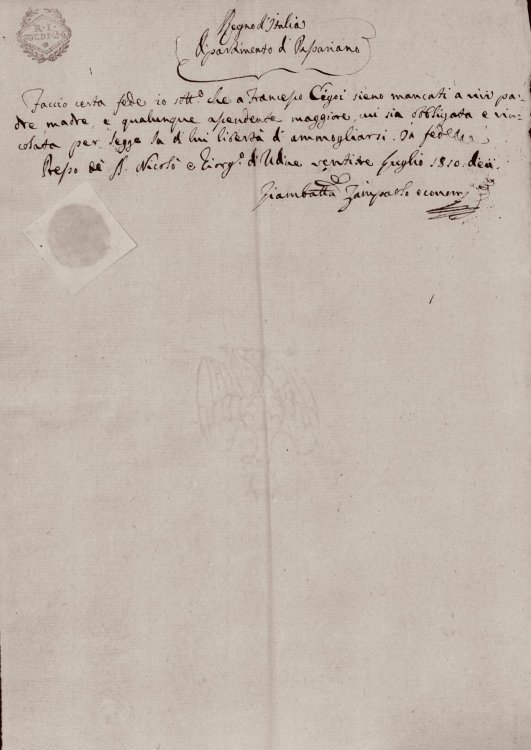 Regno d'Italia
Dipartimento di Passariano
Faccio certa fede io sott.º che a Francesco Cigoi sieno mancati a vivi pa-
dre madre, e qualunque ascendente maggiore, cui sia obbligata e vin-
colata per legge la di lui libertà di ammogliarsi. In fede
Presso S. Nicolò di Udine ventitre Luglio 1810 dieci.
Giambatta Zampa economo